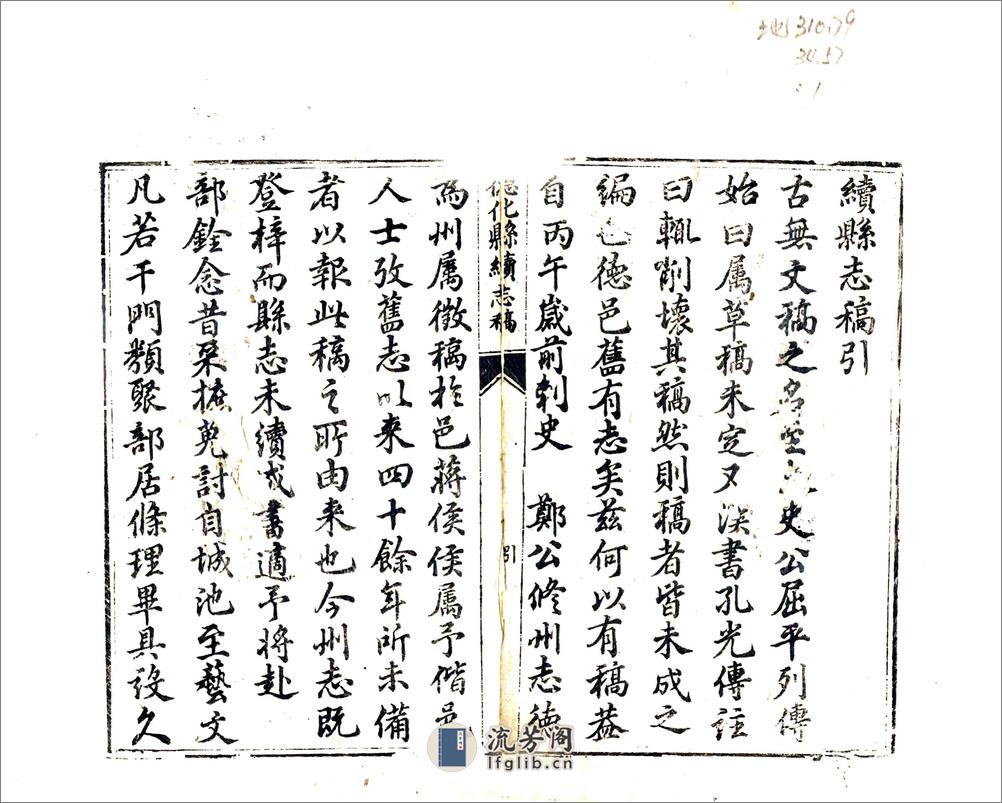 地310.79
34.57
:1
續縣志稿引
古無文稿之名至太史公屈平列傳
始曰属草稿未定又漢書孔光傳註
曰輙削壞其稿然則稿者皆未成之
編也德邑舊有志矣兹何以有稿葢
自丙午嵗前刺史　鄭公修州志德
德化縣續志稿
引
為州属徵稿於邑蔣侯侯属予偕邑
人士攷舊志以来四十餘年所未備
者以報此稿之所由来也今州志既
登梓而縣志未續成書適予将赴
部銓念昔采摭蒐討自城池至藝文
凡若干門類聚部居條理畢具設久
流芳阁
lfglib.cn